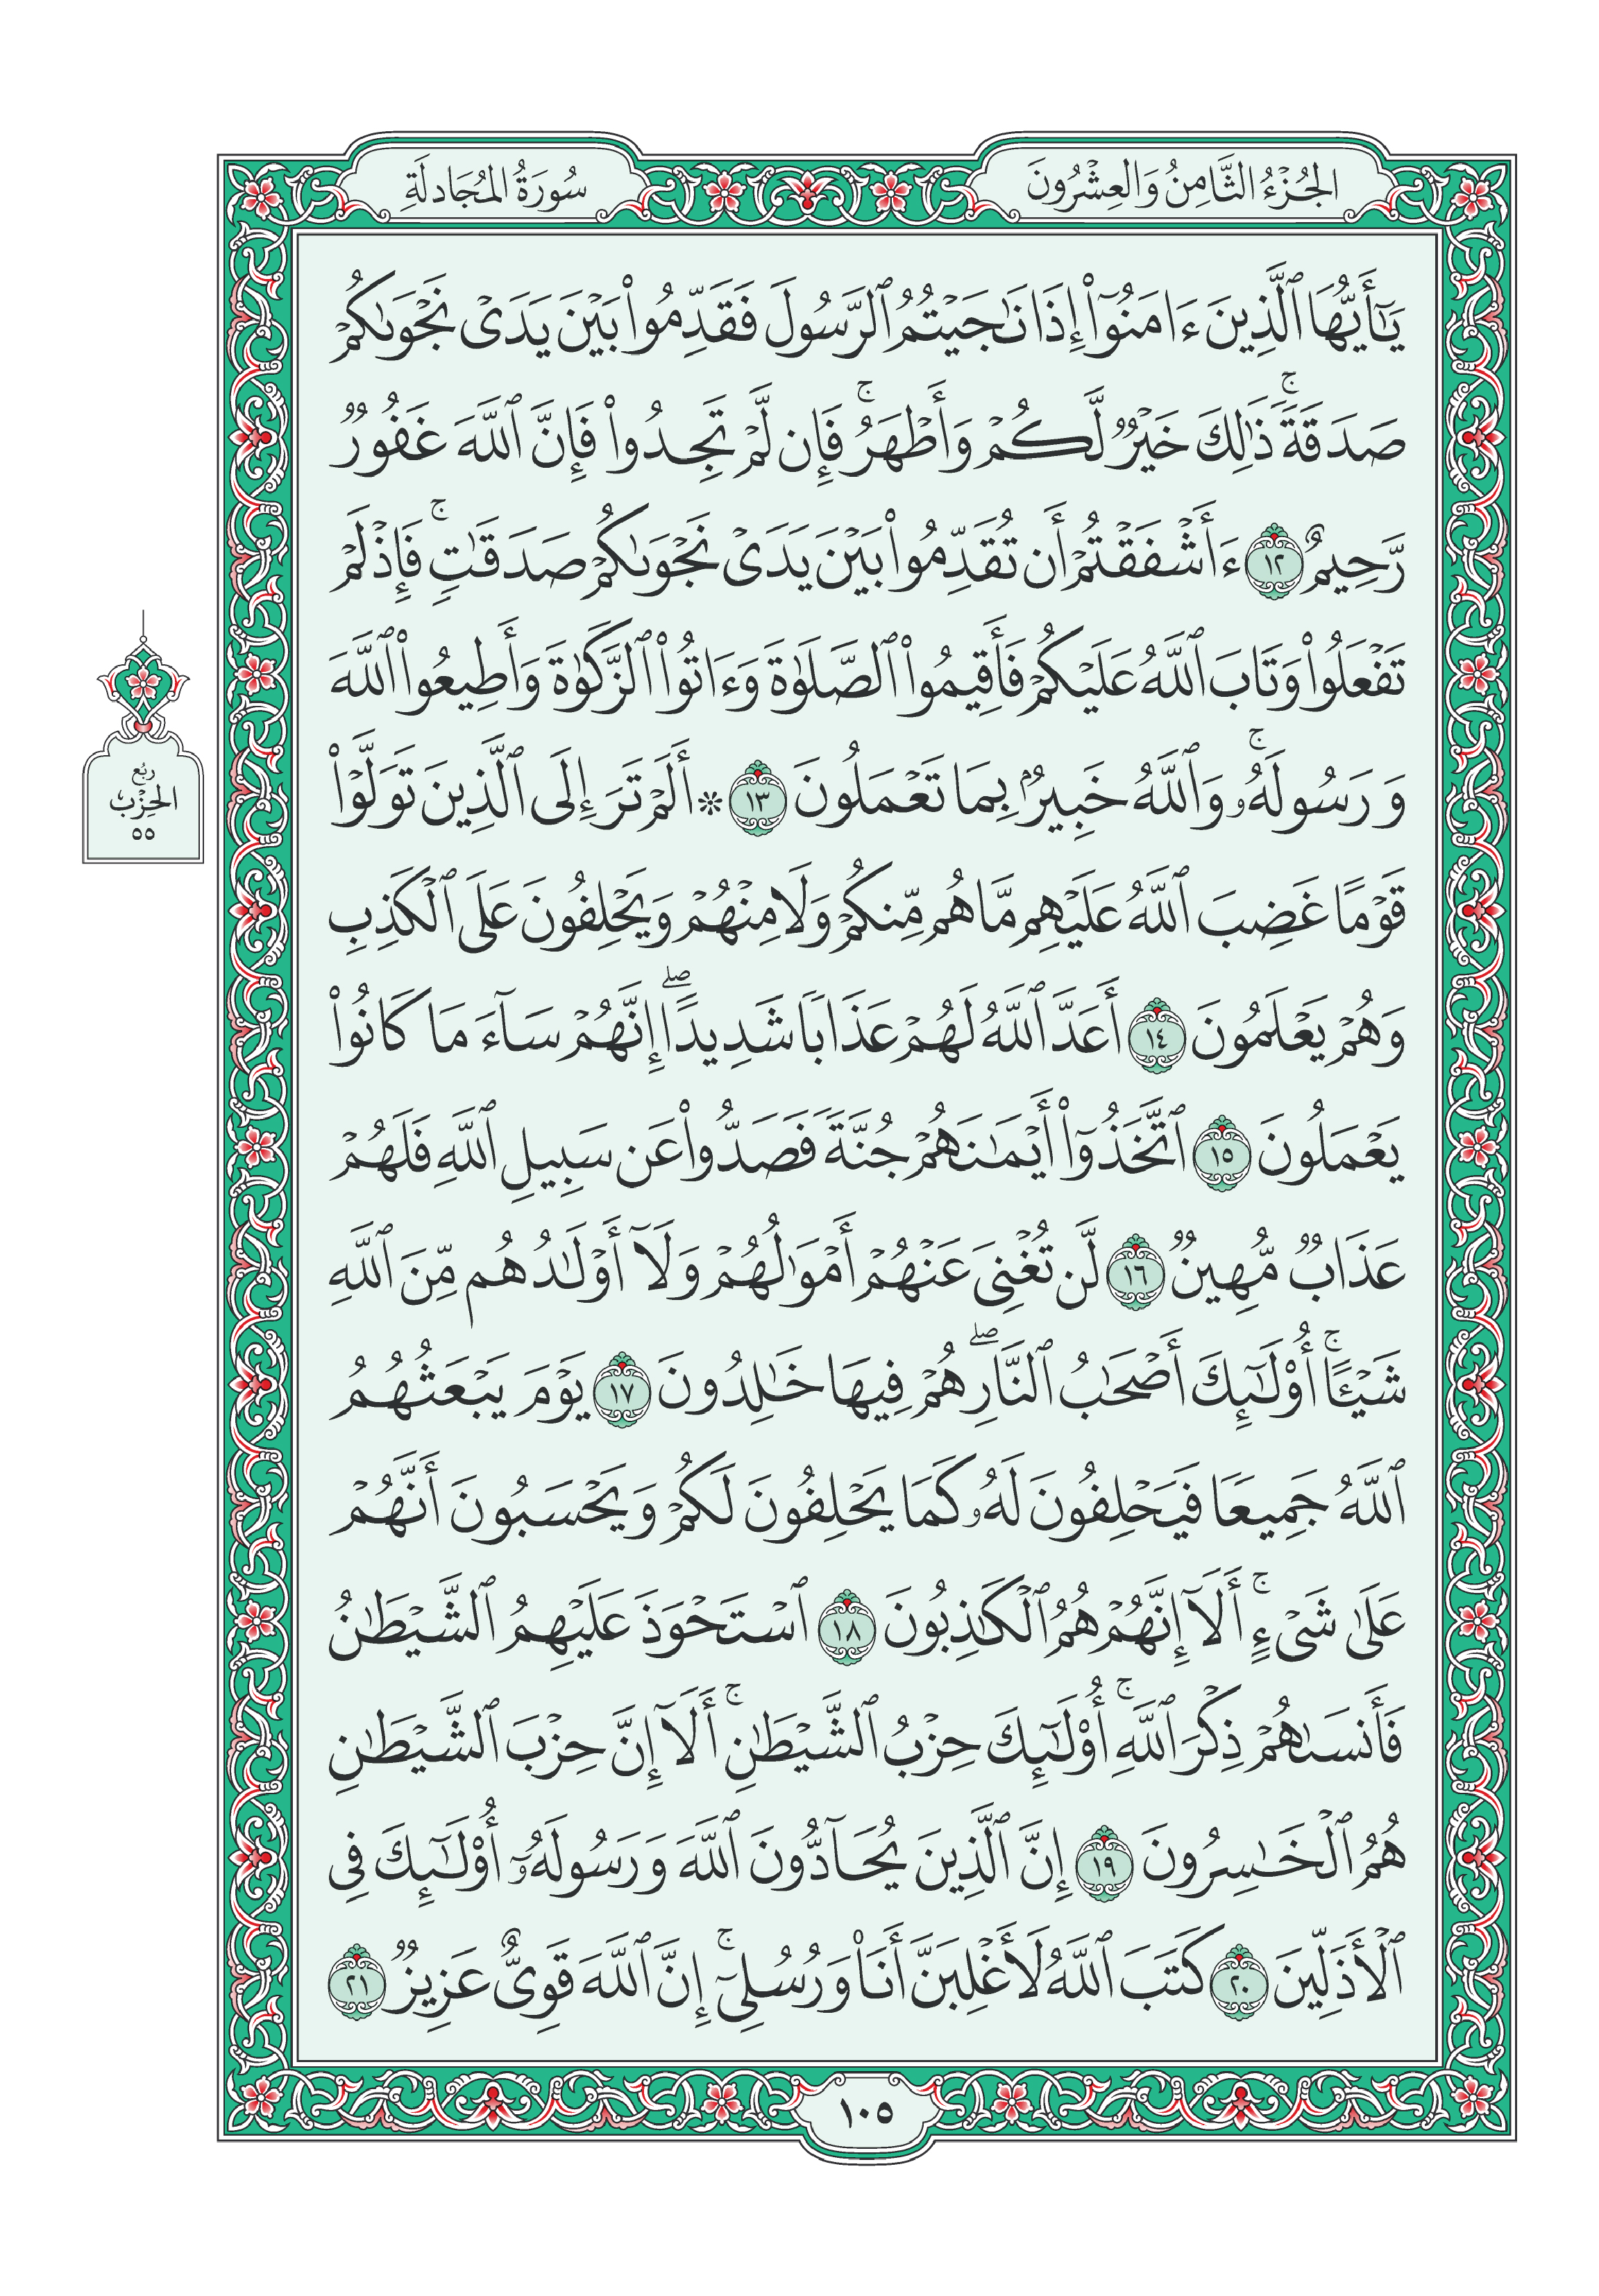 الجُزْءُ الثَّامِنُ وَالعِشْرُونَ
سُورَةُ المُجَادلَةِ
يَـٰٓأَيُّهَا ٱلَّذِينَ ءَامَنُوٓاْ إِذَا نَـٰجَيۡتُمُ ٱلرَّسُولَ فَقَدِّمُواْ بَيۡنَ يَدَيۡ نَجۡوَىٰكُمۡ
صَدَقَةٗۚ ذَٰلِكَ خَيۡرٞ لَّكُمۡ وَأَطۡهَرُۚ فَإِن لَّمۡ تَجِدُواْ فَإِنَّ ٱللَّهَ غَفُورٞ
رَّحِيمٌ ١٢ ءَأَشۡفَقۡتُمۡ أَن تُقَدِّمُواْ بَيۡنَ يَدَيۡ نَجۡوَىٰكُمۡ صَدَقَـٰتٖۚ فَإِذۡ لَمۡ
تَفۡعَلُواْ وَتَابَ ٱللَّهُ عَلَيۡكُمۡ فَأَقِيمُواْ ٱلصَّلَوٰةَ وَءَاتُواْ ٱلزَّكَوٰةَ وَأَطِيعُواْ ٱللَّهَ
وَرَسُولَهُۥۚ وَٱللَّهُ خَبِيرُۢ بِمَا تَعۡمَلُونَ ١٣ ۞ أَلَمۡ تَرَ إِلَى ٱلَّذِينَ تَوَلَّوۡاْ
قَوۡمًا غَضِبَ ٱللَّهُ عَلَيۡهِم مَّا هُم مِّنكُمۡ وَلَا مِنۡهُمۡ وَيَحۡلِفُونَ عَلَى ٱلۡكَذِبِ
وَهُمۡ يَعۡلَمُونَ ١٤ أَعَدَّ ٱللَّهُ لَهُمۡ عَذَابٗا شَدِيدًاۖ إِنَّهُمۡ سَآءَ مَا كَانُواْ
يَعۡمَلُونَ ١٥ ٱتَّخَذُوٓاْ أَيۡمَـٰنَهُمۡ جُنَّةٗ فَصَدُّواْ عَن سَبِيلِ ٱللَّهِ فَلَهُمۡ
عَذَابٞ مُّهِينٞ ١٦ لَّن تُغۡنِيَ عَنۡهُمۡ أَمۡوَٰلُهُمۡ وَلَآ أَوۡلَـٰدُهُم مِّنَ ٱللَّهِ
شَيۡـًٔاۚ أُوْلَـٰٓئِكَ أَصۡحَـٰبُ ٱلنَّارِۖ هُمۡ فِيهَا خَـٰلِدُونَ ١٧ يَوۡمَ يَبۡعَثُهُمُ
ٱللَّهُ جَمِيعٗا فَيَحۡلِفُونَ لَهُۥ كَمَا يَحۡلِفُونَ لَكُمۡ وَيَحۡسَبُونَ أَنَّهُمۡ
عَلَىٰ شَيۡءٍۚ أَلَآ إِنَّهُمۡ هُمُ ٱلۡكَـٰذِبُونَ ١٨ ٱسۡتَحۡوَذَ عَلَيۡهِمُ ٱلشَّيۡطَـٰنُ
فَأَنسَىٰهُمۡ ذِكۡرَ ٱللَّهِۚ أُوْلَـٰٓئِكَ حِزۡبُ ٱلشَّيۡطَـٰنِۚ أَلَآ إِنَّ حِزۡبَ ٱلشَّيۡطَـٰنِ
هُمُ ٱلۡخَـٰسِرُونَ ١٩ إِنَّ ٱلَّذِينَ يُحَآدُّونَ ٱللَّهَ وَرَسُولَهُۥٓ أُوْلَـٰٓئِكَ فِي
ٱلۡأَذَلِّينَ ٢٠ كَتَبَ ٱللَّهُ لَأَغۡلِبَنَّ أَنَا۠ وَرُسُلِيٓۚ إِنَّ ٱللَّهَ قَوِيٌّ عَزِيزٞ ٢١
ربُع
الحِزْب
٥٥
١٠٥